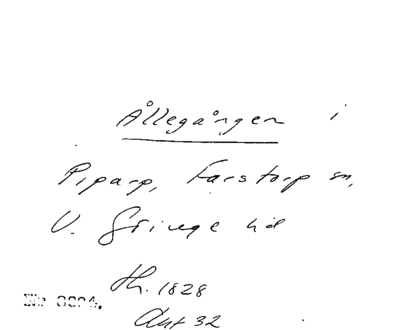 Ållegången i
Piparp, Farstorp sn,
V. Göinge hd
th. 1828
Ant 32